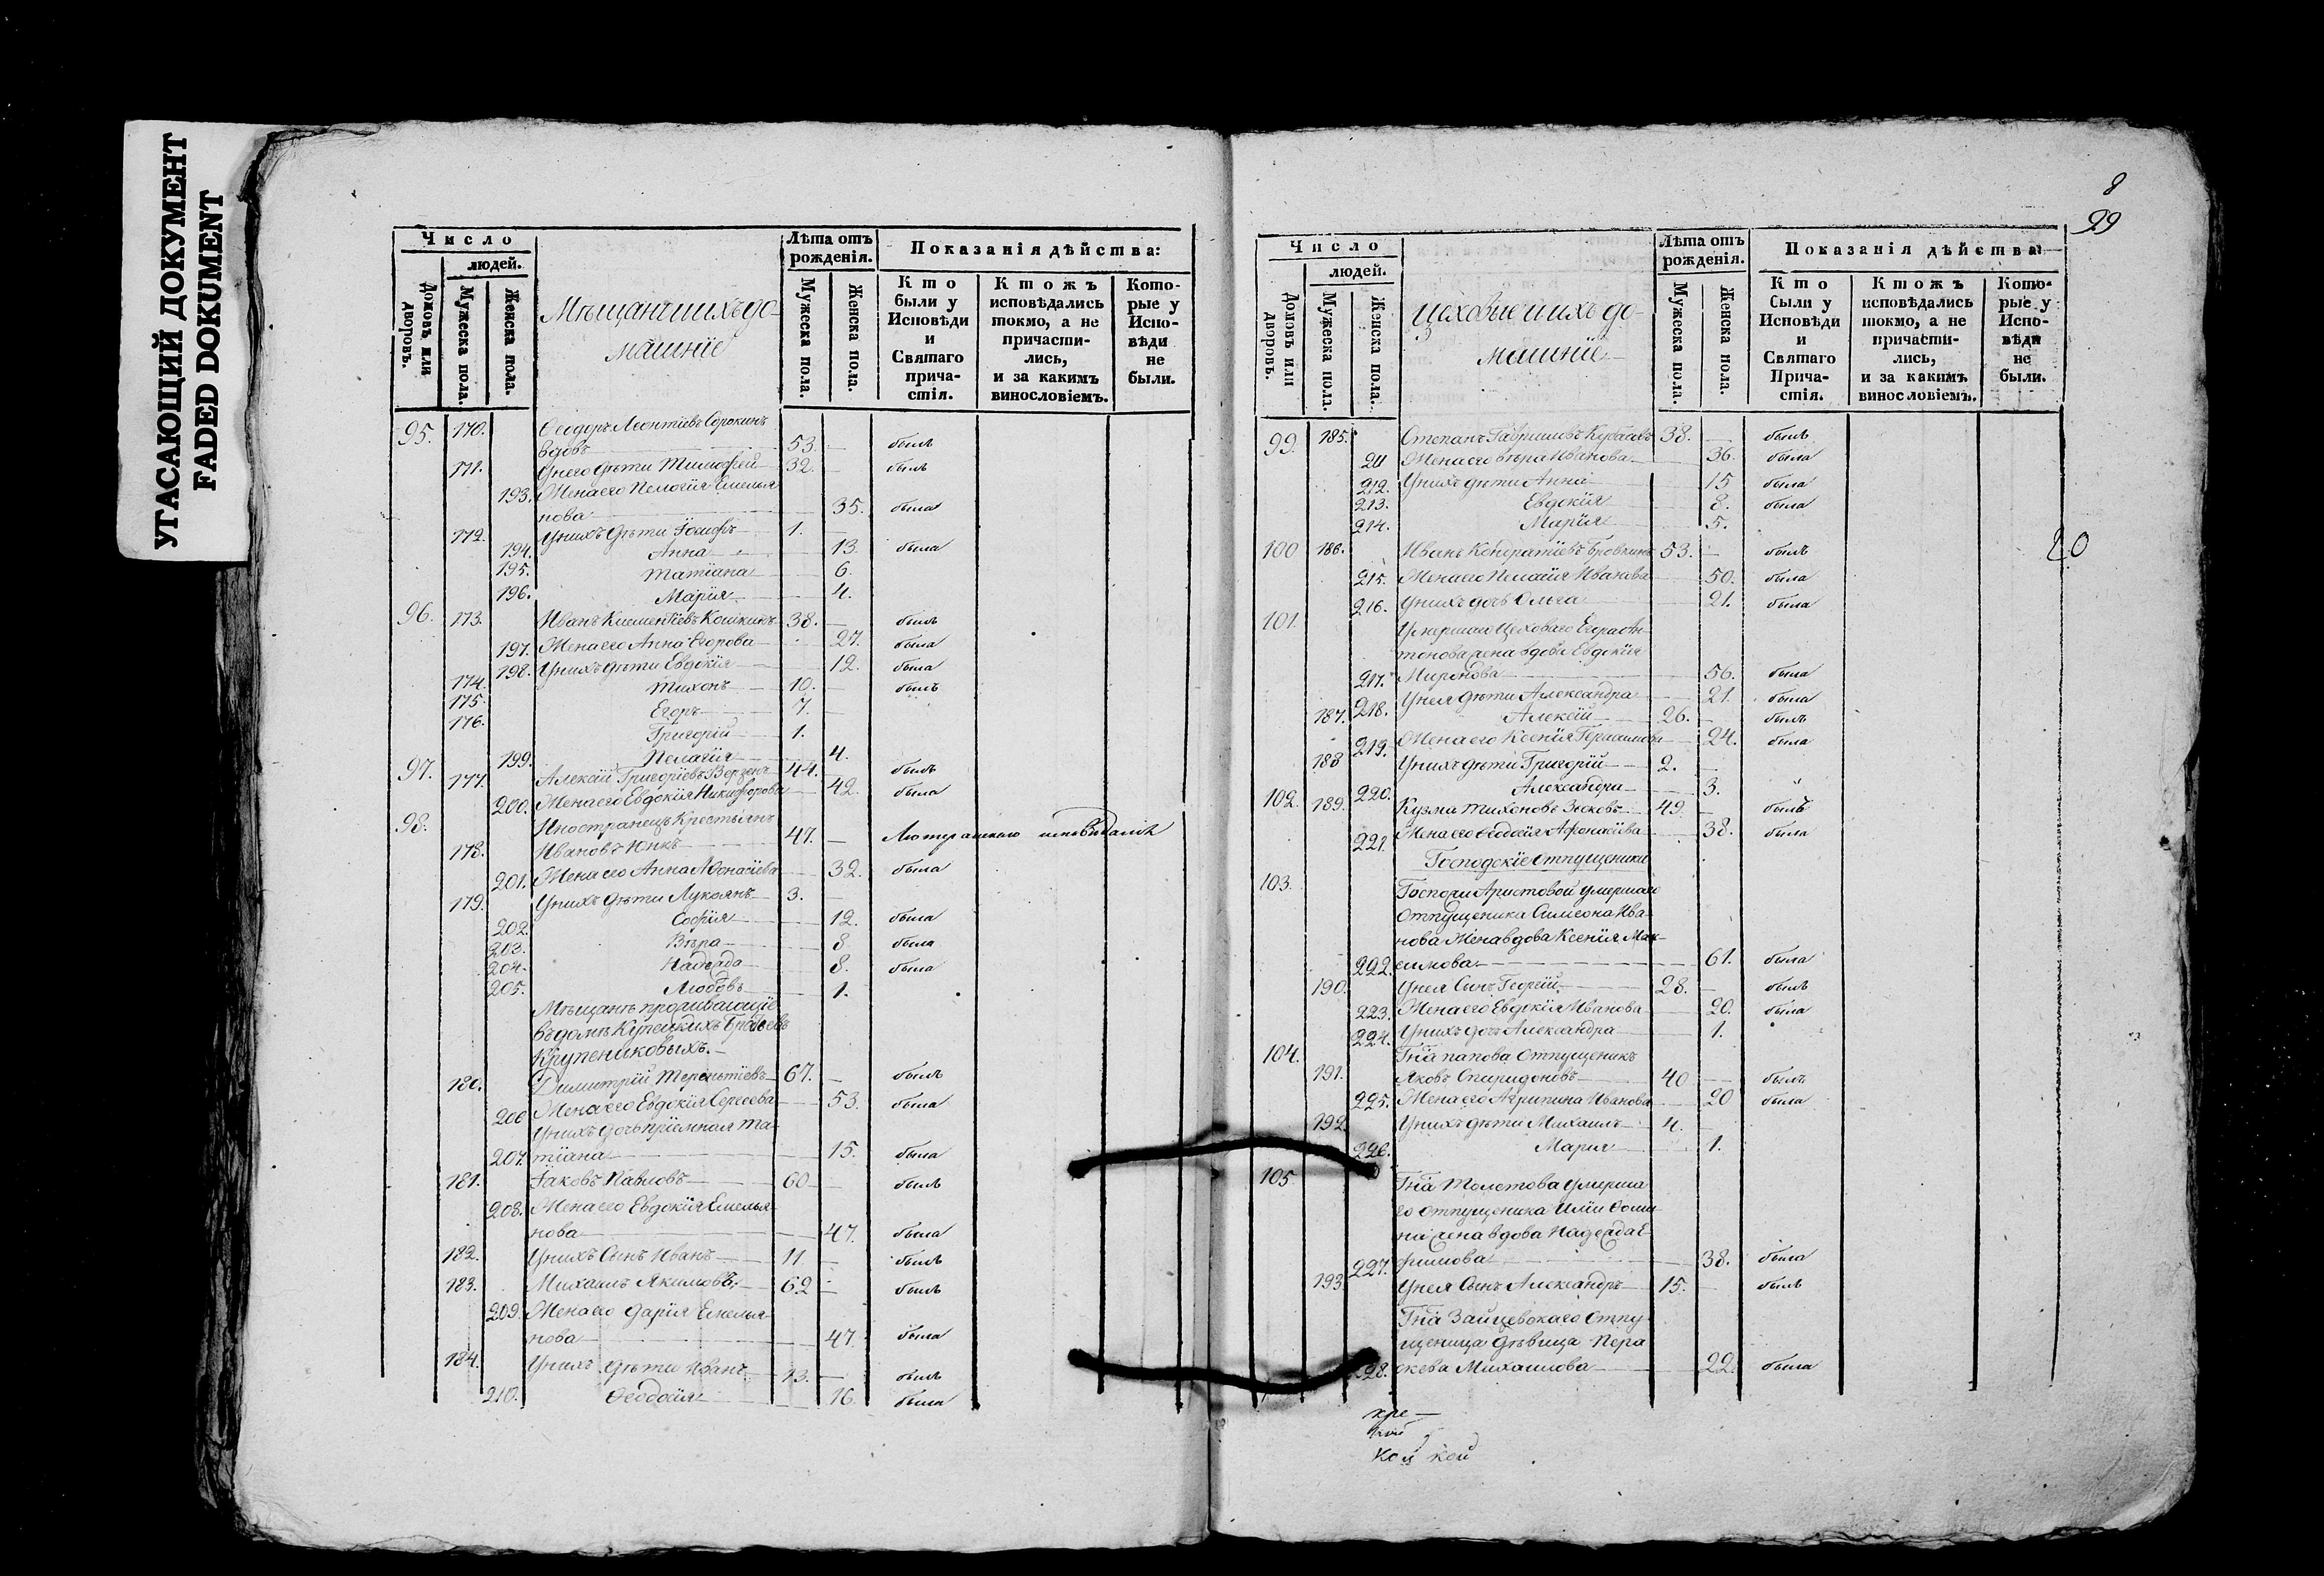 УГАСАЮЩИЙ ДОКУМЕНТ
FADED DOKUMENT
Число
людей.
Домовъ или дворовъ.
Мужеска пола.
Женска пола.
Мѣщанъ и ихъ до-
машніе
Лѣта отъ рожденія.
Мужеска пола.
Женска пола.
Показанія дѣйства:
Кто были у Исповѣди и Святаго прича- стія.
Ктожъ исповѣдались токмо, а не причасти- лись, и за какимъ винословіемъ.
Кото- рые у Испо- вѣди не были.
95. 170. Ѳеодоръ Леонтіевъ Сорокинъ
вдовъ 53. — былъ
171. У него дѣти Тимофей 32. — былъ
193. Жена его Пелагія Емелья
нова 35. была
172. У нихъ дѣти Іосифъ 1. —
194. Анна 13. была
195. Татіана 6.
196. Марія 4.
96. 173. Иванъ Климентіевъ Кошкинъ 38. — былъ
197. Жена его Анна Егорова 27. была
198. У нихъ дѣти Евдокія 12. была
174. Тихонъ 10. — былъ
175. Егоръ 7. —
176. Григорій 1.
199. Пелагія 4.
97. 177. Алексій Григоріевъ 44. былъ
200. Жена его Евдокія Никифорова 42. была
98. Иностранецъ Крестьянъ
178. Ивановъ Юнкъ 47. — Лютеранскаго исповѣданія
201. Жена его Анна Афонасіева 32. была
179. У нихъ дѣти Лукоянъ 3. —
202. Софія 12. была
203. Вѣра 8 была
204. Надежда 8. была
205. Любовь 1.
Мѣщанъ проживающіе
въ домѣ Купецкихъ Братьевъ
Крупениковыхъ.
180. Димитрій Терентіевъ 67. — былъ
206 Жена его Евдокія Сергеева 53. была
У нихъ дочь пріемная Та-
207. тіана 15. была
181. Іаковъ Павловъ 60 — былъ
208. Жена его Евдокія Емелья
нова 47. была
182. У нихъ Сынъ Иванъ 11 — былъ
183. Михаилъ Якимовъ. 62 — былъ
209. Жена его Дарія Емелья
нова 47. была
184. У нихъ дѣти Иванъ 13. — былъ
210. Ѳеодосія 16. была
8
29
Число
людей.
Домовъ или дворовъ.
Мужеска пола.
Женска пола.
Цеховые и ихъ до-
машніе
Лѣта отъ рожденія.
Мужеска пола.
Женска пола.
Показанія дѣйства:
Кто были у Исповѣди и Святаго Прича- стія.
Ктожъ исповѣдались токмо, а не причасти- лись, и за какимъ винословіемъ.
Кото- рые у Испо- вѣди не были.
99. 185. Степанъ Гавриловъ 38. — былъ
211 Жена его Вѣра Иванова 36. была
212. У нихъ дѣти Анна 15 была
213. Евдокія 8. была
214. Марія 5.
100 186. Иванъ Кондратіевъ Бровкинъ 53. — былъ
20
215. Жена его Пелагія Иванова 50. была
216. У нихъ дочь Ольга 21. была
101. Умершаго Цеховаго Егора Ан-
тонова жена вдова Евдокія
217. Миронова 56. была
218. У нея дѣти Александра 21. была
187. Алексій 26. — былъ
219. Жена его Ксенія Герасимова 24. была
188 У нихъ дѣти Григорій 2. —
220. Александра 3. "
102. 189. Кузма Тихоновъ Зюковъ 49. — былъ
221. Жена его Ѳеодосія Афонасіева 38. была
Господскіе отпущеники
103. Госпожи Аристовой умершаго
отпущеника Симеона Ива
нова Жена вдова Ксенія Мак-
222. симова 61. была
190. У нея Сынъ Георгій 28. — былъ
223. Жена его Евдокія Иванова 20. была
224. У нихъ дочь Александра 1.
104. Гна Папова Отпущеникъ
191. Яковъ Спиридоновъ 40 — былъ
225. Жена его Агрипина Иванова 20 была
192. У нихъ дѣти Михаилъ 4. —
226. Марія 1.
105 Гна Молотова умерша
го отпущеника Иліи Ѳоми
на жена вдова Надежда Е
227. фимова 38. была
193 У нея Сынъ Александръ 15. — былъ
Гна Зайцевскаго Отпу
щеница дѣвица Пера
228. скева Михаилова 22. была
кре —
кой кой